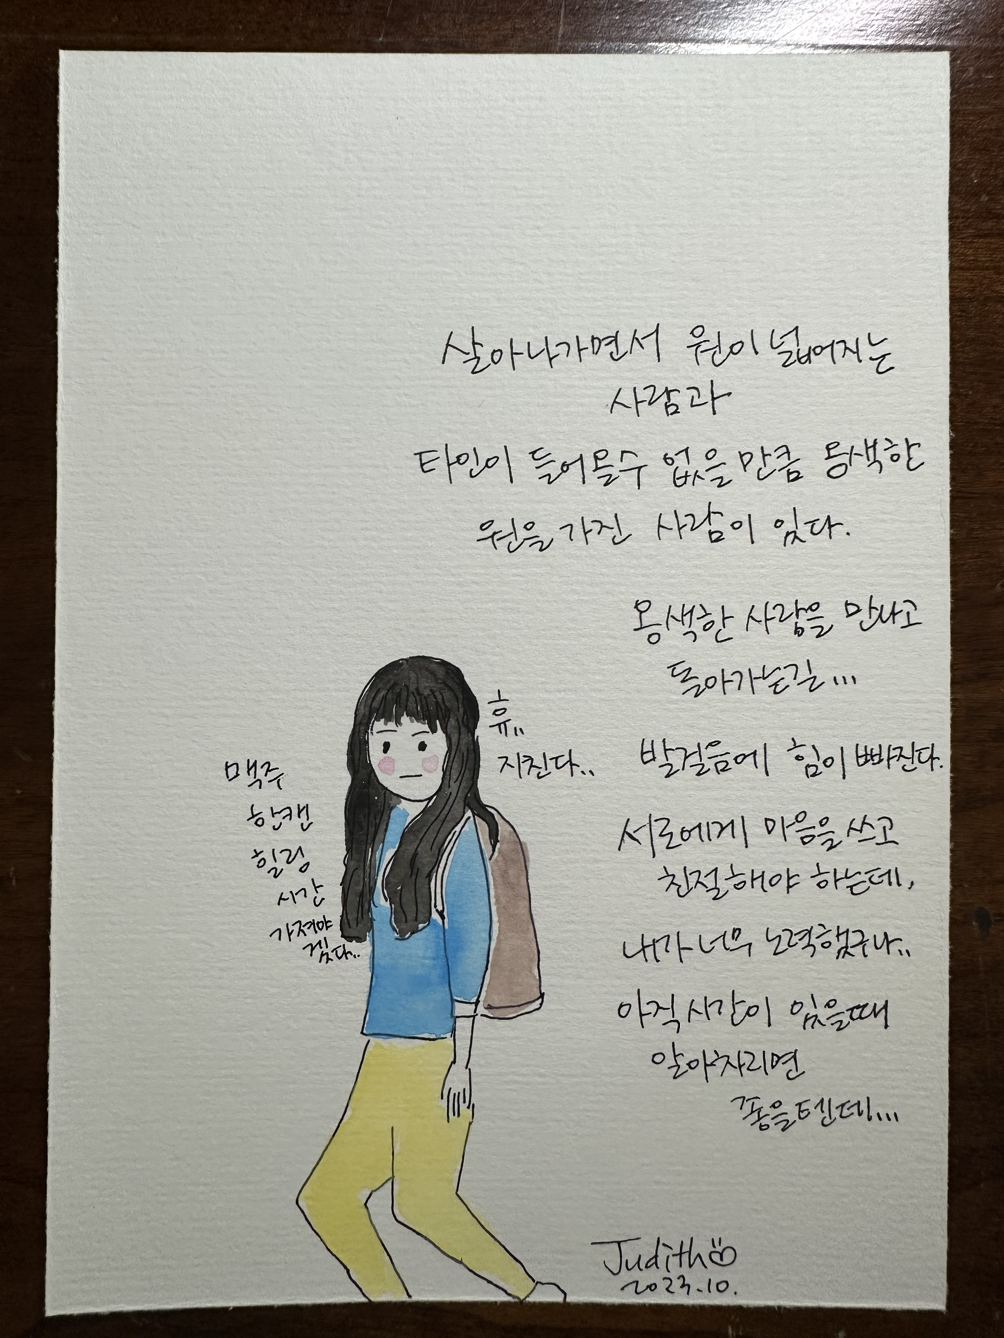 살아나가면서 원이 넓어지는
사람과
타인이 들어올수 없을 만큼 옹색한
원을 가진 사람이 있다.
옹색한 사람을 만나고
돌아가는길...
발걸음에 힘이 빠진다.
서로에게 마음을 쓰고
친절해야 하는데,
내가 너무 노력했구나..
아직 시간이 있을때
알아차리면
좋을텐데...
휴..
지친다..
맥주
한캔
힐링
시간
가져야
겠다..
Judith
2023.10.